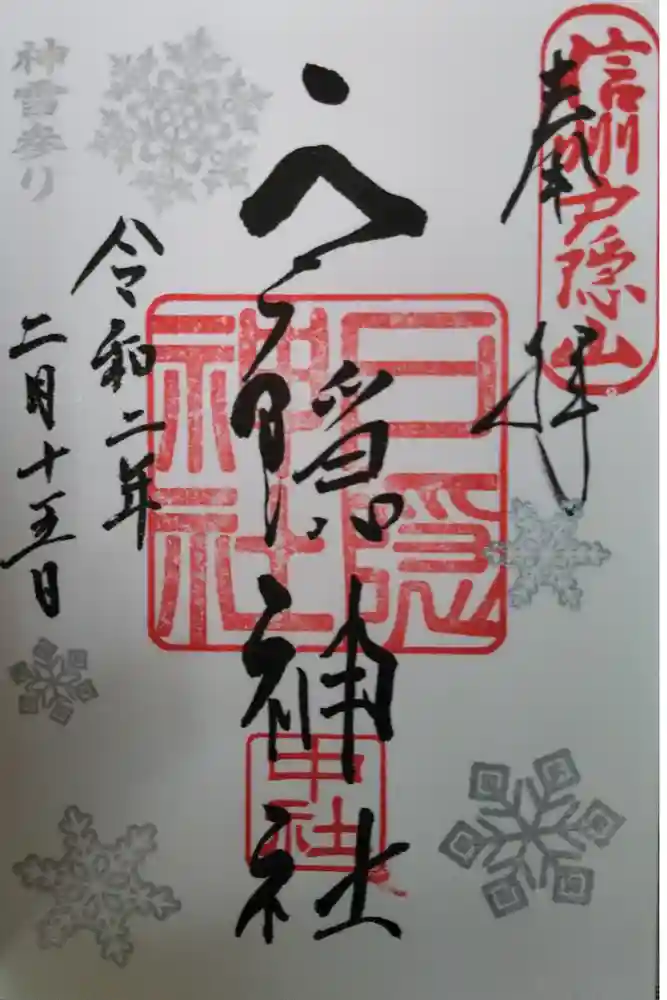 奉拝
信州戸隠山
戸隠神社
戸隠
神社
中社
令和二年
二月十五日
神雪参り